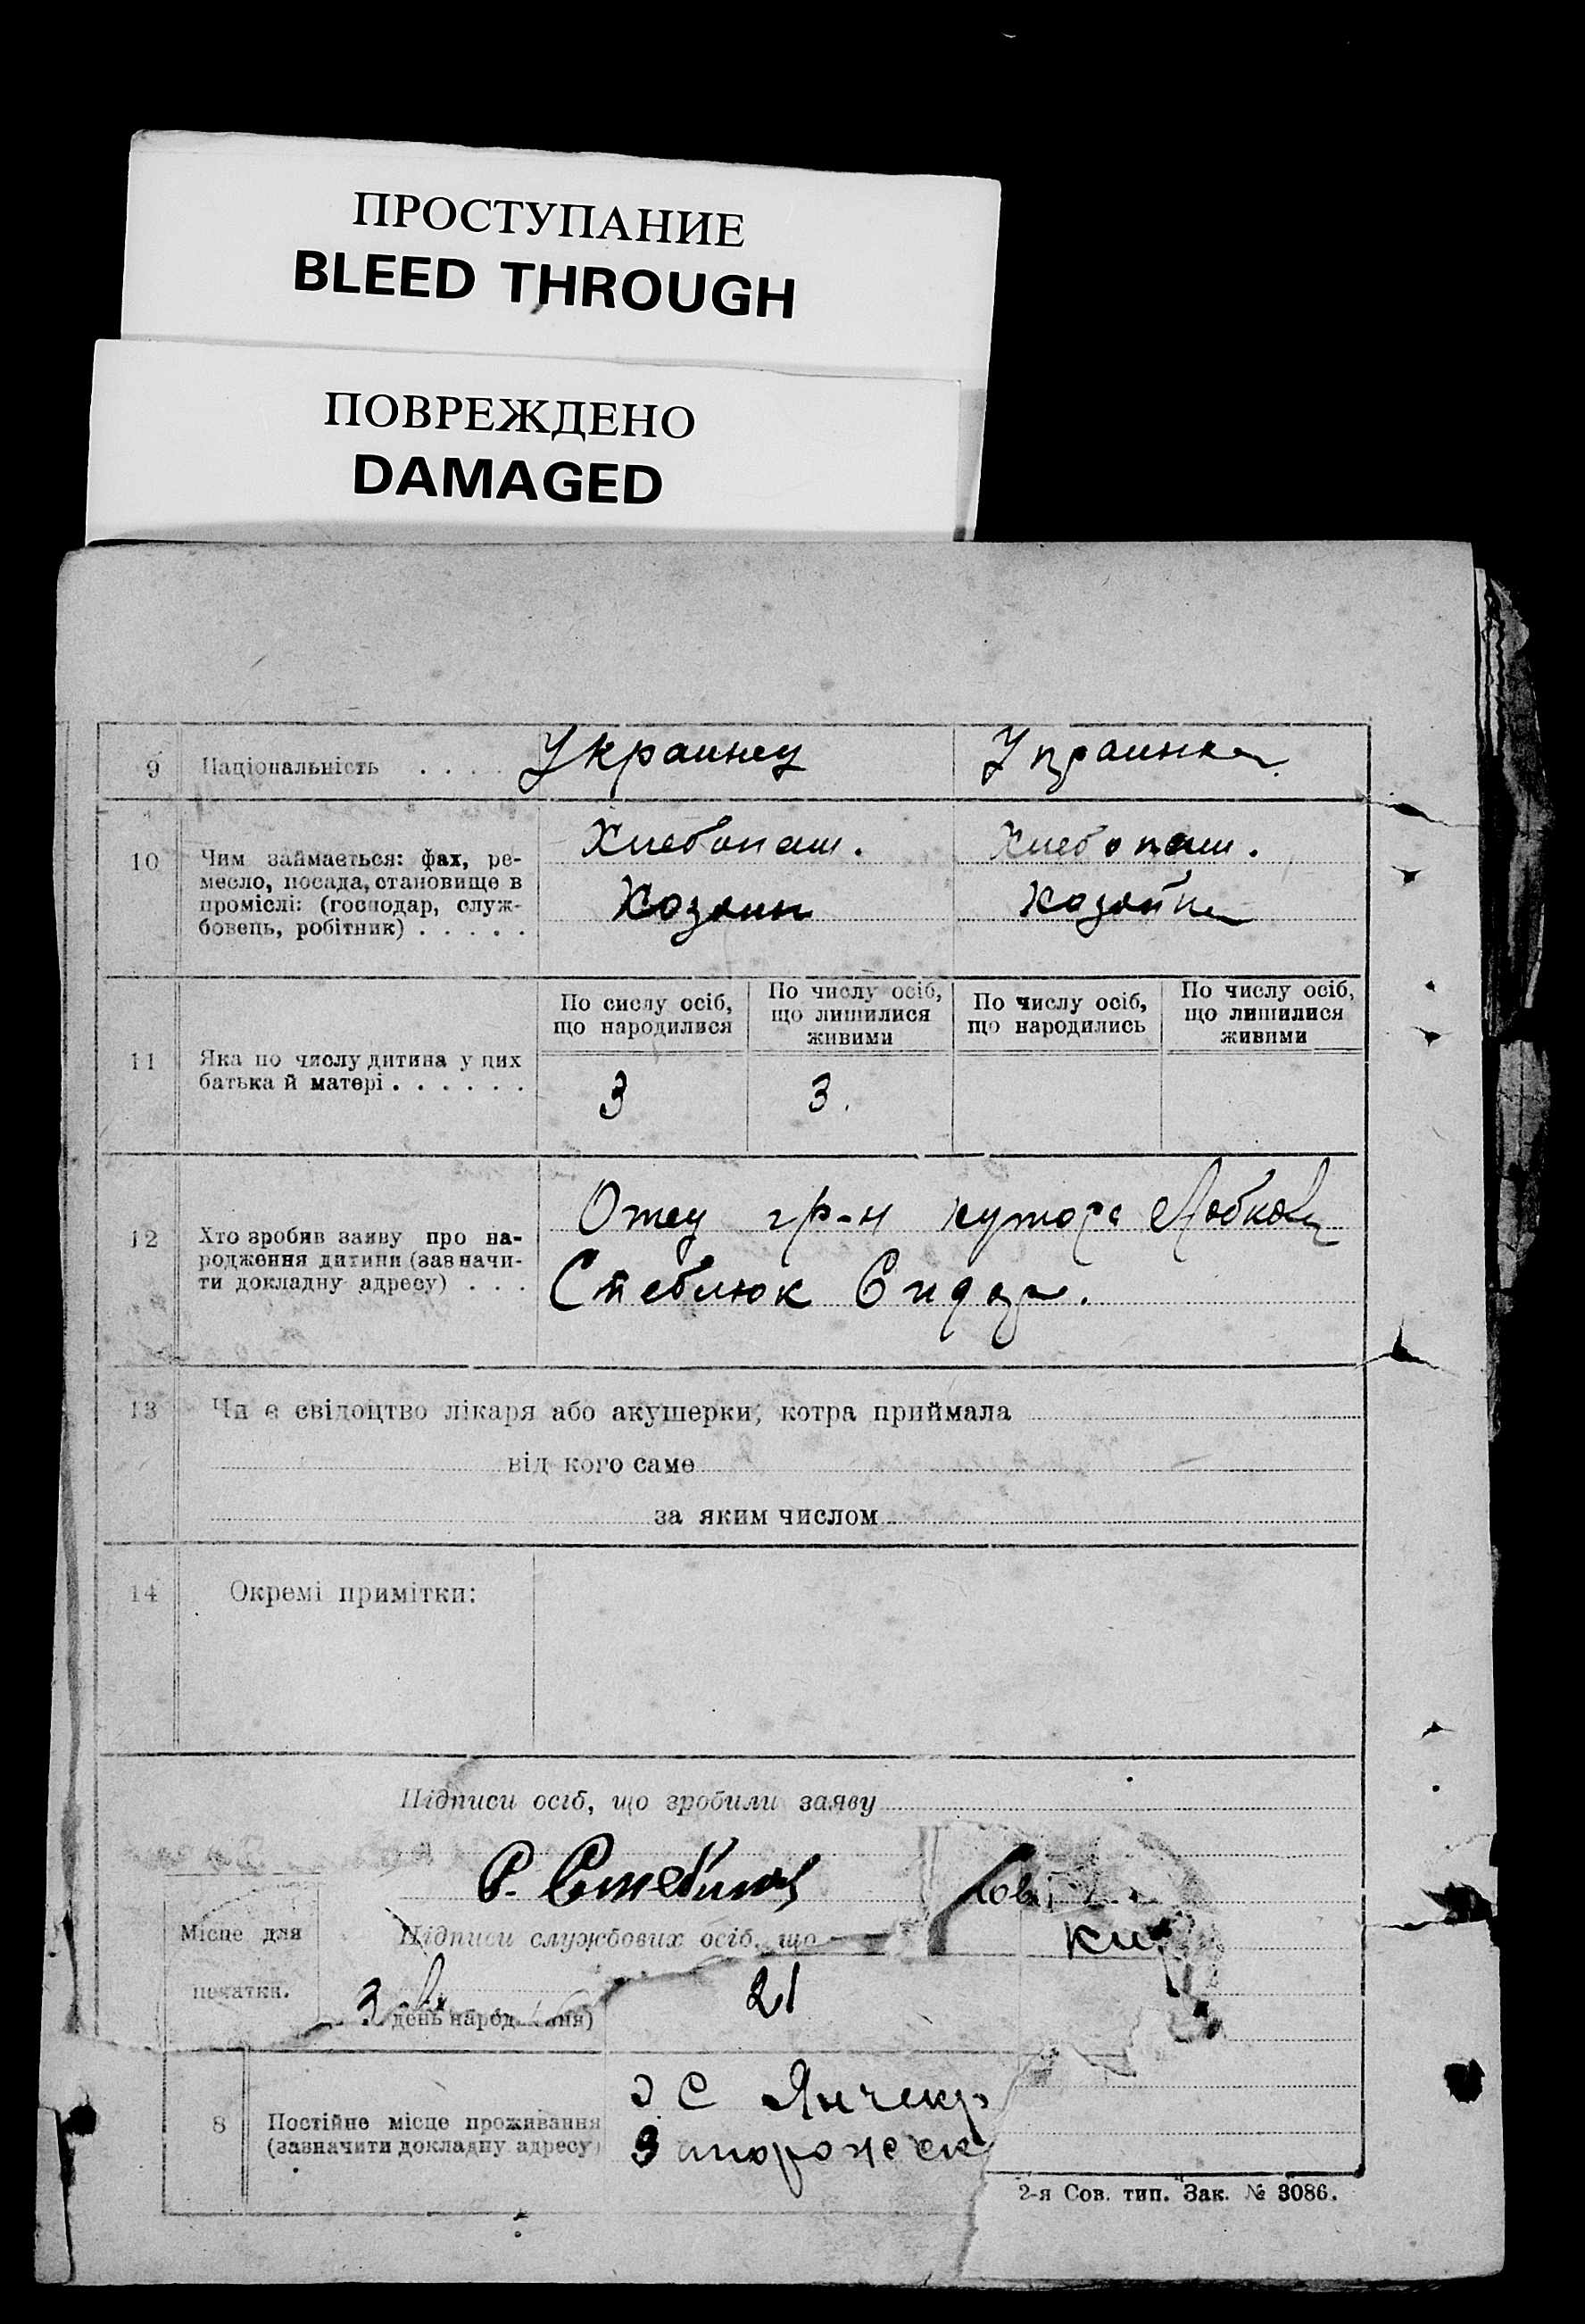 ПРОСТУПАНИЕ
BLEED THROUGH
ПОВРЕЖДЕНО
DAMAGED
9 Національність . . . . Украинец Украинка
10 Чим займається: фах, ре-
месло, посада, становище в
проміслі: (господар, служ-
бовець, робітник) . . . . .
Хлебопаш. Хлебопаш.
Хозяин Хозяйка
По сислу осіб,
що народилися
По числу осіб,
що лишилися
живими
По числу осіб,
що народились
По числу осіб,
що лишилися
живими
11 Яка по числу дитина у цих
батька й матері . . . . . .
3 3.
12 Хто зробив заяву про на-
родження дитини (зазначи-
ти докладну адресу) . . .
Отец гр-н хутора
Стеблюк Сидор.
13 Чи є свідоцтво лікаря або акушерки, котра приймала
від кого саме
за яким числом
14 Окремі примітки:
Підписи осіб, що зробили заяву
С.
Місце для
печатки.
Підписи службових осіб, що
21
день народ
8 Постійне місце проживання
(зазначити докладну адресу)
С
2-я Сов. тип. Зак. № 3086.